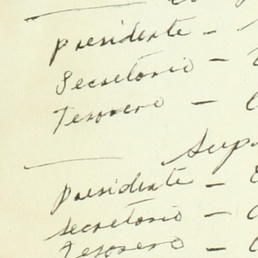 Presidente -
Secretario -
Tesorero -
Sup
Presidente -
Secretario -
Tesorero -